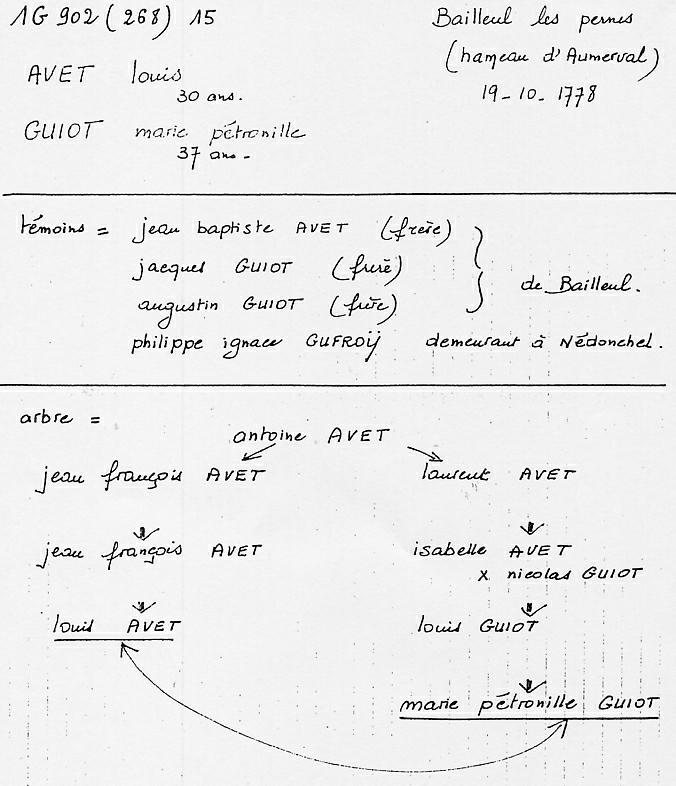 1G 902 (268) 15
Bailleul les pernes
(hameau d'Aumerval)
19-10-1778
AVET louis
30 ans.
GUIOT marie pétronille
37 ans.
témoins = jean baptiste AVET (frère)
jacques GUIOT (frère)
augustin GUIOT (frère)
de Bailleul.
philippe ignace GUFROÿ demeurant à Nédonchel.
arbre =
antoine AVET
jean françois AVET laurent AVET
jean françois AVET isabelle AVET
x nicolas GUIOT
louis AVET louis GUIOT
marie pétronille GUIOT